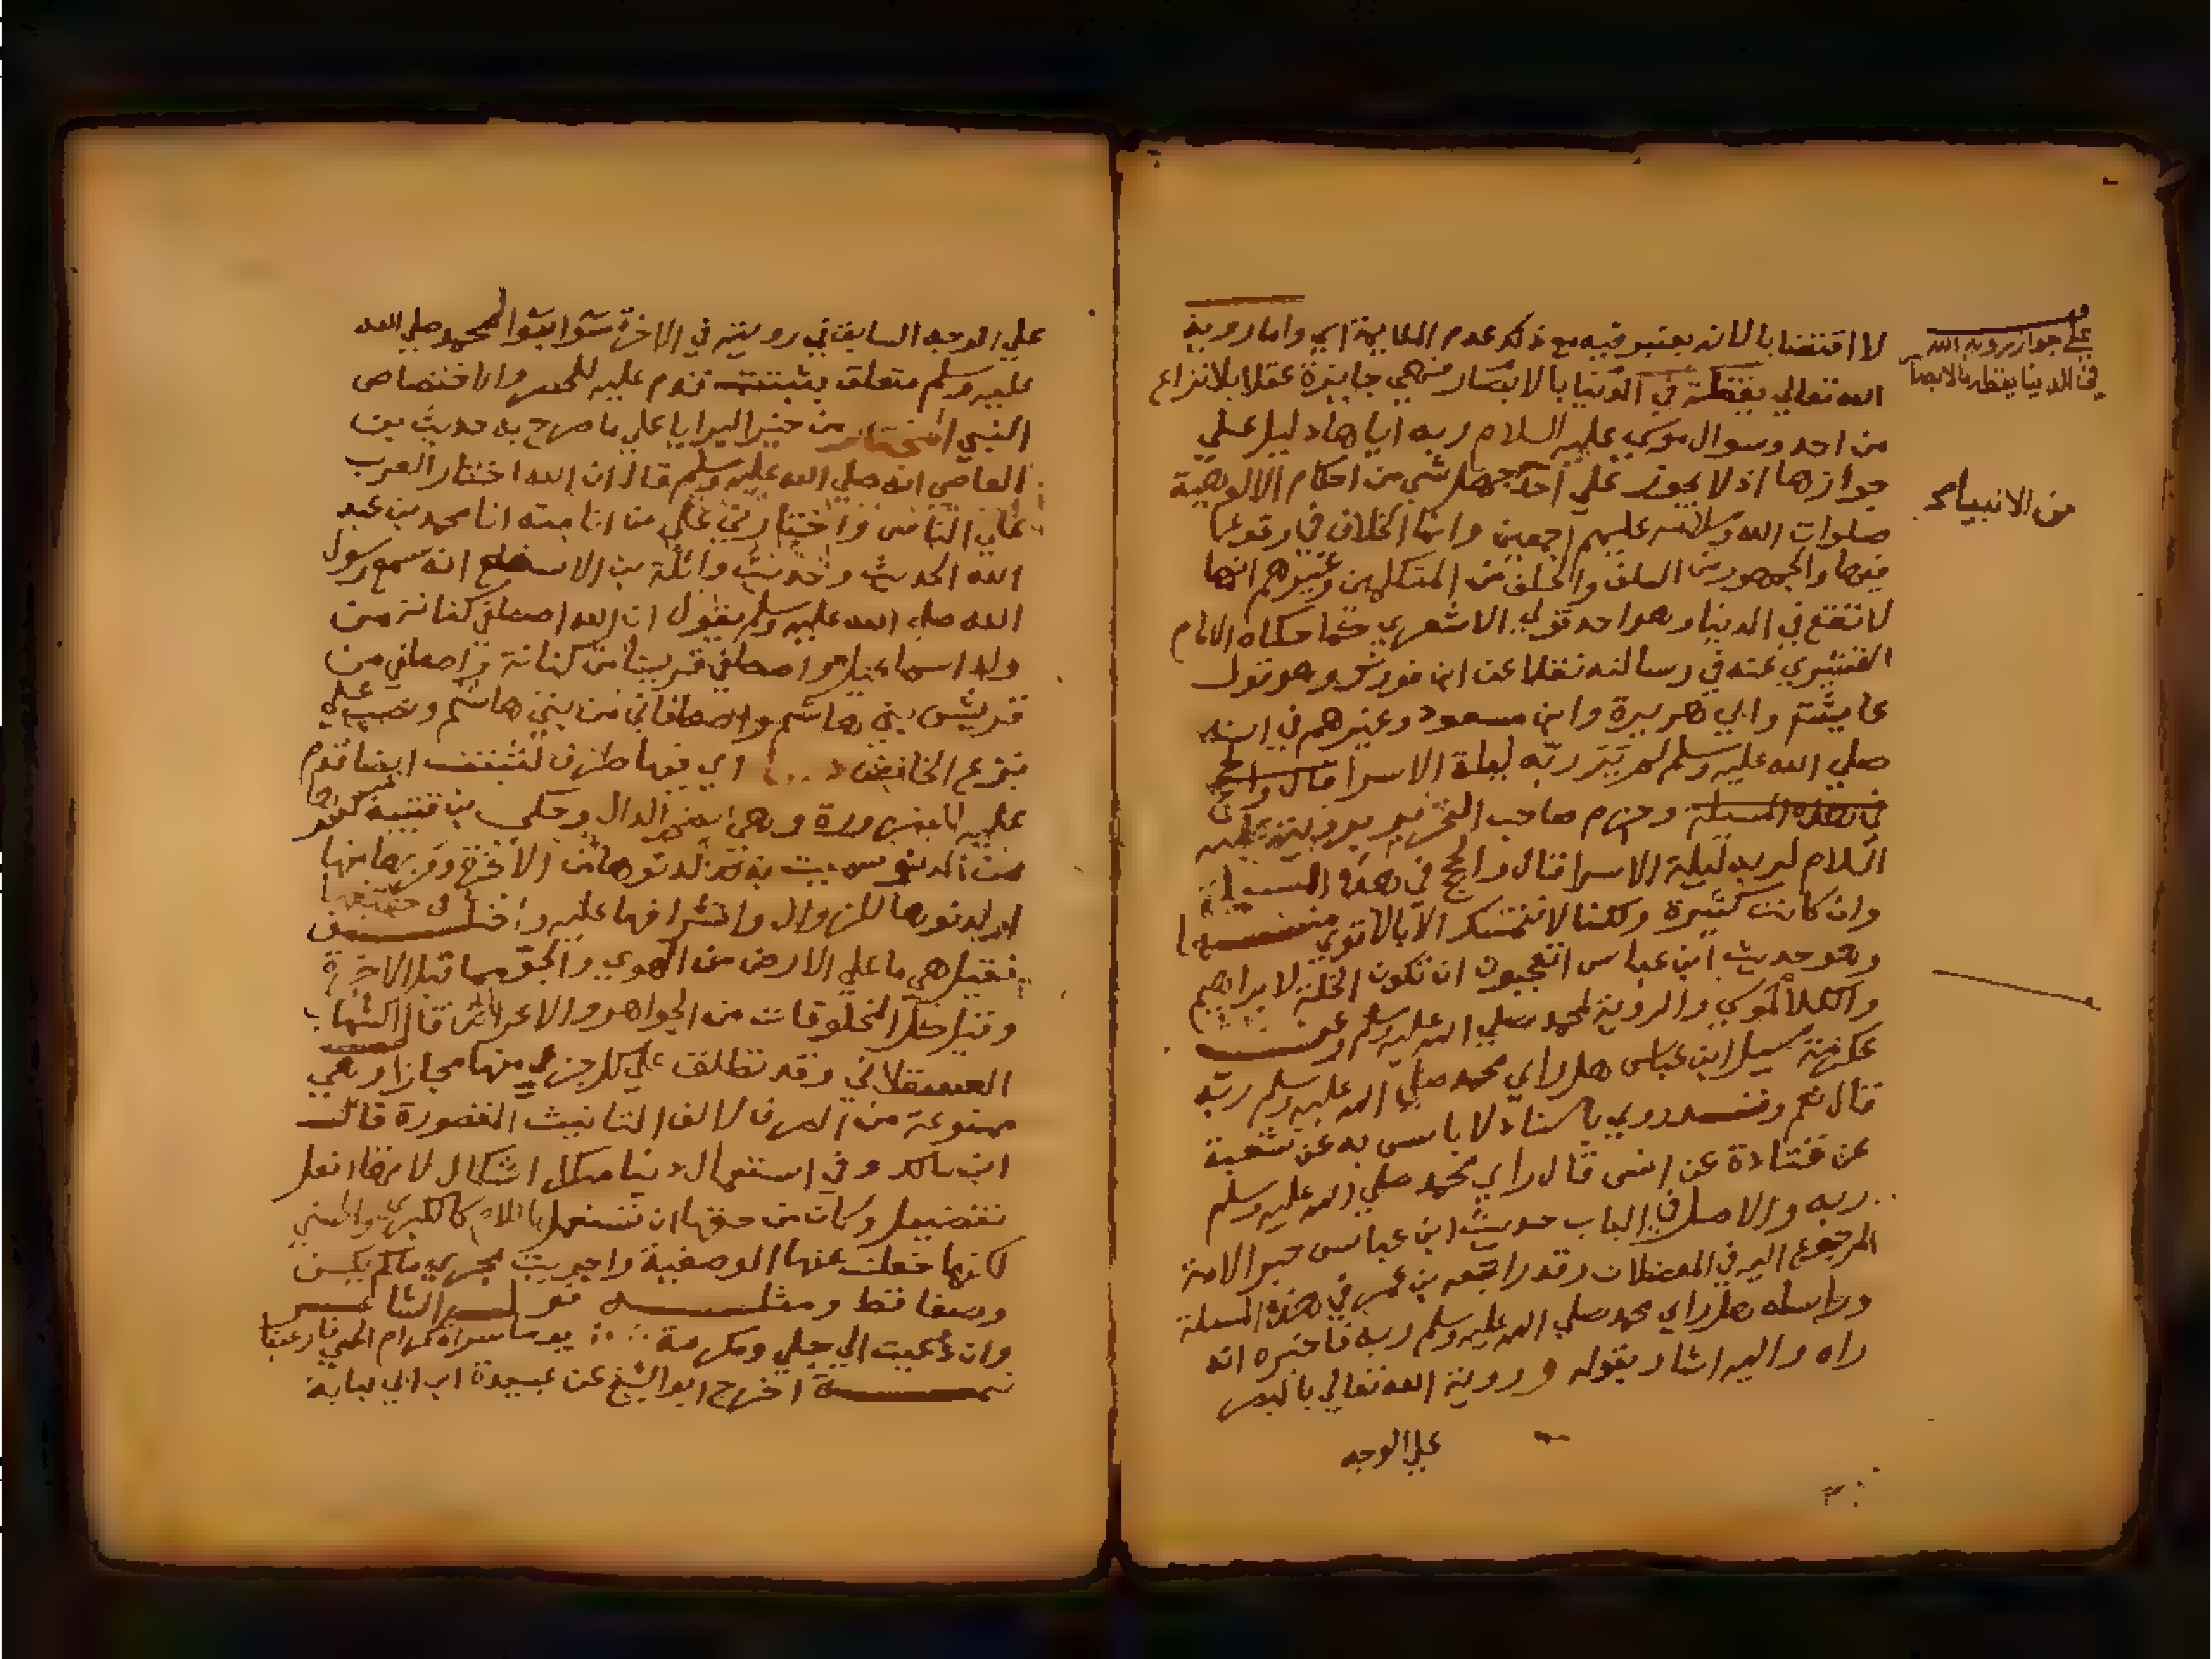 على جواز روية الله
في الدنيا يقظة بالابصار
من الانبياء
لا اقتضا بالذات يعتبر فيه مع ذلك عدم الملايمة اي واما روية
الله تعالي يقظة في الدنيا بالابصار فهي جايزة عقلا بلا نزاع
من احد وسوال موسي عليه السلام ربه اياها دليل علي
جوازها اذ لا يجوز علي احد جهل شي من احكام الالوهية
صلوات الله وسلامه عليهم اجمعين وانما الخلاف في وقوعها
فيها والجمهور من السلف والخلف من المتكلمين وغيرهم انها
لا تقع في الدنيا وهو احد قولي الاشعري كما حكاه الامام
القشيري عنه في رسالته نقلا عن ابن فورك وهو قول
عايشة وابي هريرة وابن مسعود وغيرهم في انه
صلي الله عليه وسلم لم ير ربه ليلة الاسرا قال والحج
في هذه المسيلة وجزم صاحب التحرير برويته عليه
السلام لربه ليلة الاسرا قال والحجج في هذه المسيلة
وان كانت كثيرة ولكنا لا نتمسك الا بالاقوي منها
وهو حديث ابن عباس اتعجبون ان تكون الخلة لابراهيم
والكلام لموسي والروية لمحمد صلي الله عليه وسلم وعن
عكرمة سيل ابن عباس هل راي محمد صلي الله عليه وسلم ربه
قال نعم وقد روي باسناد لا باس به عن شعبة
عن قتادة عن انس قال راي محمد صلي الله عليه وسلم
ربه والاصل في الباب حديث ابن عباس حبر الامة
المرجوع اليه في المعضلات وقد راجعه بن عمر في هذه المسيلة
وراسله هل راي محمد صلي الله عليه وسلم ربه فاخبره انه
راه واليه اشار بقوله و روية الله تعالي بالبصر
علي الوجه
علي الوجه السابق في رويته في الاخرة لمحمد صلي الله
عليه وسلم متعلق بثبتت قدم عليه للحصر والاختصاص
النبي المختار من خير البرايا علي ما صرح به حديث بن
العاصي انه صلي الله عليه وسلم قال ان الله اختار العرب
علي الناس واختارني علي من انا منه انا محمد بن عبد
الله الحديث وحديث واثلة بن الاسقع انه سمع رسول
الله صلي الله عليه وسلم يقول ان الله اصطفي كنانة من
ولد اسماعيل واصطفي قريشا من كنانة واصطفي من
قريش بني هاشم واصطفاني من بني هاشم ونصب علي
نزع الخافض اي فيها ظرف لثبتت ايضا قدم
عليه للضرورة وهي بضم الدال وحكي بن قتيبة كسرها
من الدنو سميت بذلك لدنوها من الاخرة وقربها منها
او لدنوها للزوال واشرافها عليه واختلف في حقيقتها
فقيل هي ما علي الارض من الهوي والجو مما قبل الاخرة
وقيل كل المخلوقات من الجواهر والاعراض قال الشهاب
العسقلاني وقد تطلق علي كل جزء منها مجازا وهي
ممنوعة من الصرف لالف التانيث المقصورة قال
ابن مالك وفي استعمال دنيا منكرا اشكال لانها افعل
تفضيل وكان من حقها ان تستعمل باللام كالكبري والحسني
لانها خلعت عنها الوصفية واجريت مجري ما لم يكن
وصفا قط ومثله قول الشاعر
وان دعيت الي جلي ومكرمة يوما سراة كرام الحي فادعينا
تتمة اخرج ابو الشيخ عن عبيدة ابن ابي لبابة